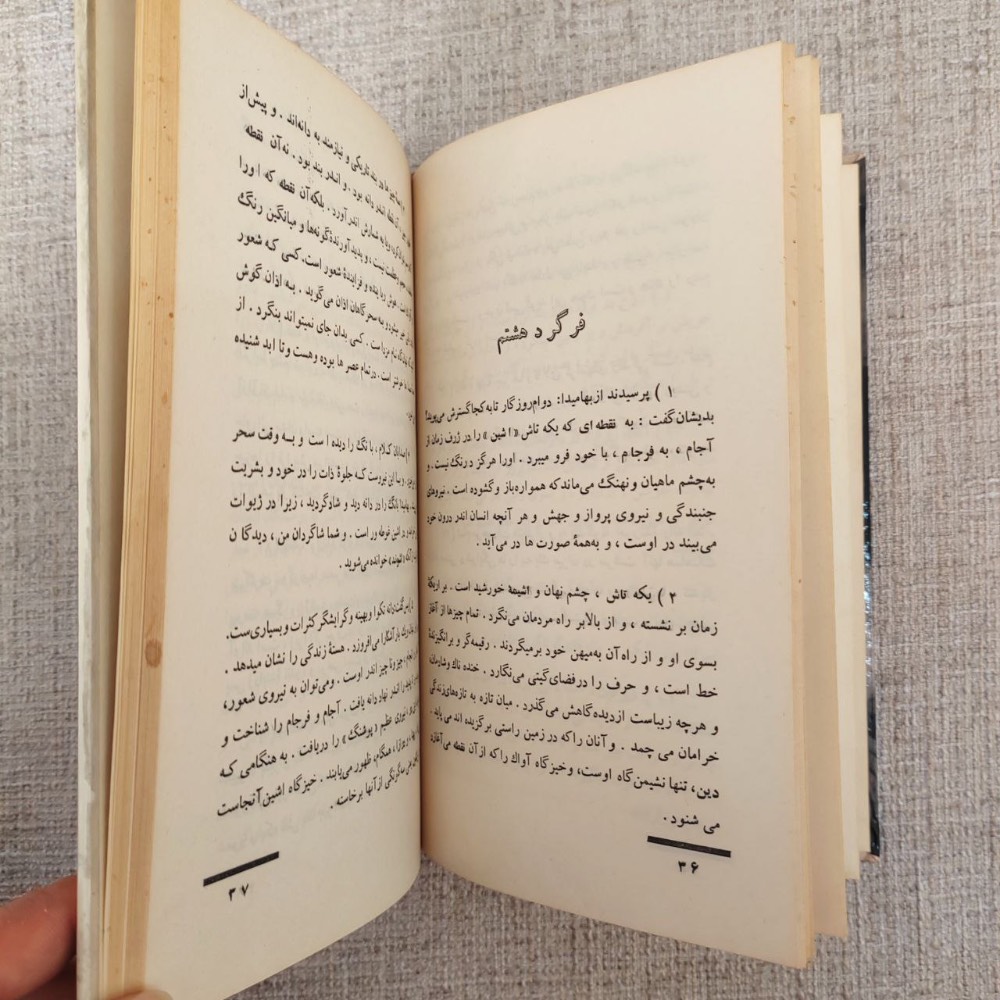 فرگرد هشتم
۱ ) پرسیدند از بهامیدا: دوام روزگار تا به کجا گسترش می‌پوید؟
بدیشان گفت : به نقطه ای که یکه تاش «اشین» را در ژرف زمان از
آجام ، به فرجام ، با خود فرو میبرد . اورا هرگز درنگ نیست . و
به چشم ماهیان و نهنگ می‌ماند که همواره باز و گشوده است . نیروهای
جنبندگی و نیروی پرواز و جهش و هر آنچه انسان اندر درون خود
می‌بیند در اوست ، و به همهٔ صورت ها در می‌آید .
۲ ) یکه تاش ، چشم نهان و اشیمهٔ خورشید است . بر اریکهٔ
زمان بر نشسته ، و از بالا بر راه مردمان می‌نگرد . تمام چیزها از آغاز
بسوی او و از راه آن به میهن خود برمیگردند . رقیمه‌گر و برانگیزندهٔ
خط است ، و حرف را در فضای گیتی می‌نگارد . خنده ناک و شارمان،
و هرچه زیباست از دیده‌گاهش می‌گذرد . میان تازه به تازه‌های زندگی
خرامان می چمد . و آنان را که در زمین راستی برگزیده اند می یابد .
دین، تنها نشیمن‌گاه اوست، وخیزگاه آواک را که از آن نقطه می‌آغازد
می شنود .
۳۶
تاریکی و نیازمند به دانه‌اند . و پیش از
اندر دانه بود . و اندر بند بود . نه آن نقطه
به شمارش اندر آورد . بلکه آن نقطه که اورا
نیست ، و پدید آورندهٔ گونه‌ها و میانگین رنگ
هوش ربا ینده و فزایندهٔ شعور است. کسی که شعور
و به سحرگاهان اذان می‌گوید . به اذان گوش
است . کسی بدان جای نمیتواند بنگرد . از
است . در تمام عصر ها بوده وهست و تا ابد شنیده
کلام ، بانگ را دیده است و به وقت سحر
این نیروست که جلوهٔ ذات را در خود و بشریت
بانگ را در دانه دید و شادگردید ، زیرا در ژیوات
اشین قرعه ور است . و شما شاگردان من ، دیدگان
خوانده می‌شوید .
دانه نکوا و بهینه و گرایشگر کثرات و بسیاری‌ست.
را می‌افروزد . هستهٔ زندگی را نشان میدهد .
چیز تا چیز اندر اوست . ومی‌توان به نیروی شعور،
را اندر نهاد دانه یافت . آجام و فرجام را شناخت و
نیروی عظیم «پوشنگ» را دریافت . به هنگامی که
هنگام، ظهور می‌یابند . خیزگاه اشین آنجاست
از آنها برخاسته .
۳۷